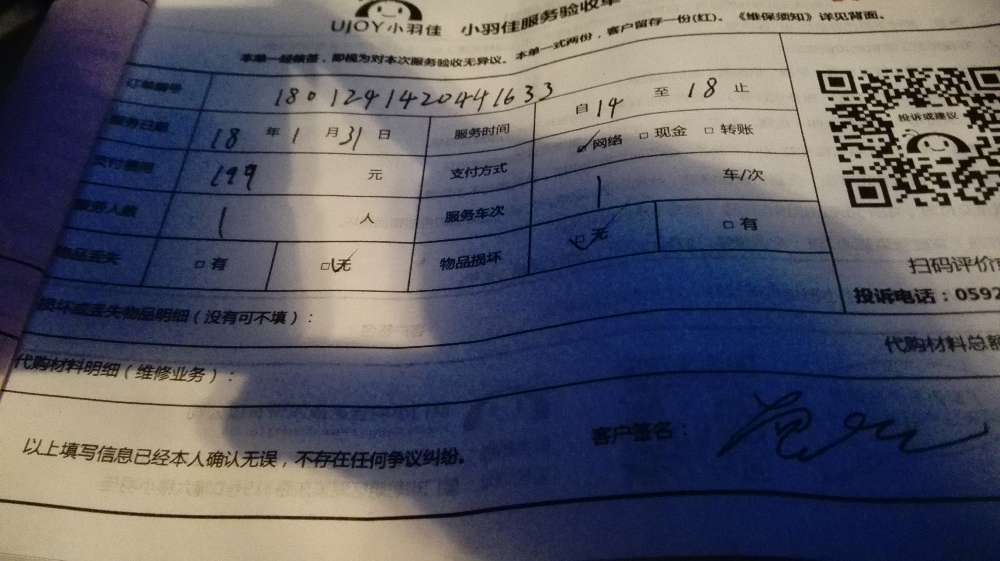 UJOY小羽佳 小羽佳服务验收单
本单一经签署，即视为对本次服务验收无异议。本单一式两份，客户留存一份(红)。《维保须知》详见背面。
订单编号 180124142044 1633
服务日期 18 年 1 月 31 日 服务时间 自 14 至 18 止
支付费用 199 元 支付方式 ☑网络 □现金 □转账
服务人数 1 人 服务车次 1 车/次
物品丢失 □有 ☑无 物品损坏 ☑无 □有
投诉或建议
扫码评价
投诉电话：0592
损坏或丢失物品明细（没有可不填）：
代购材料明细（维修业务）： 代购材料总额
以上填写信息已经本人确认无误，不存在任何争议纠纷。 客户签名：